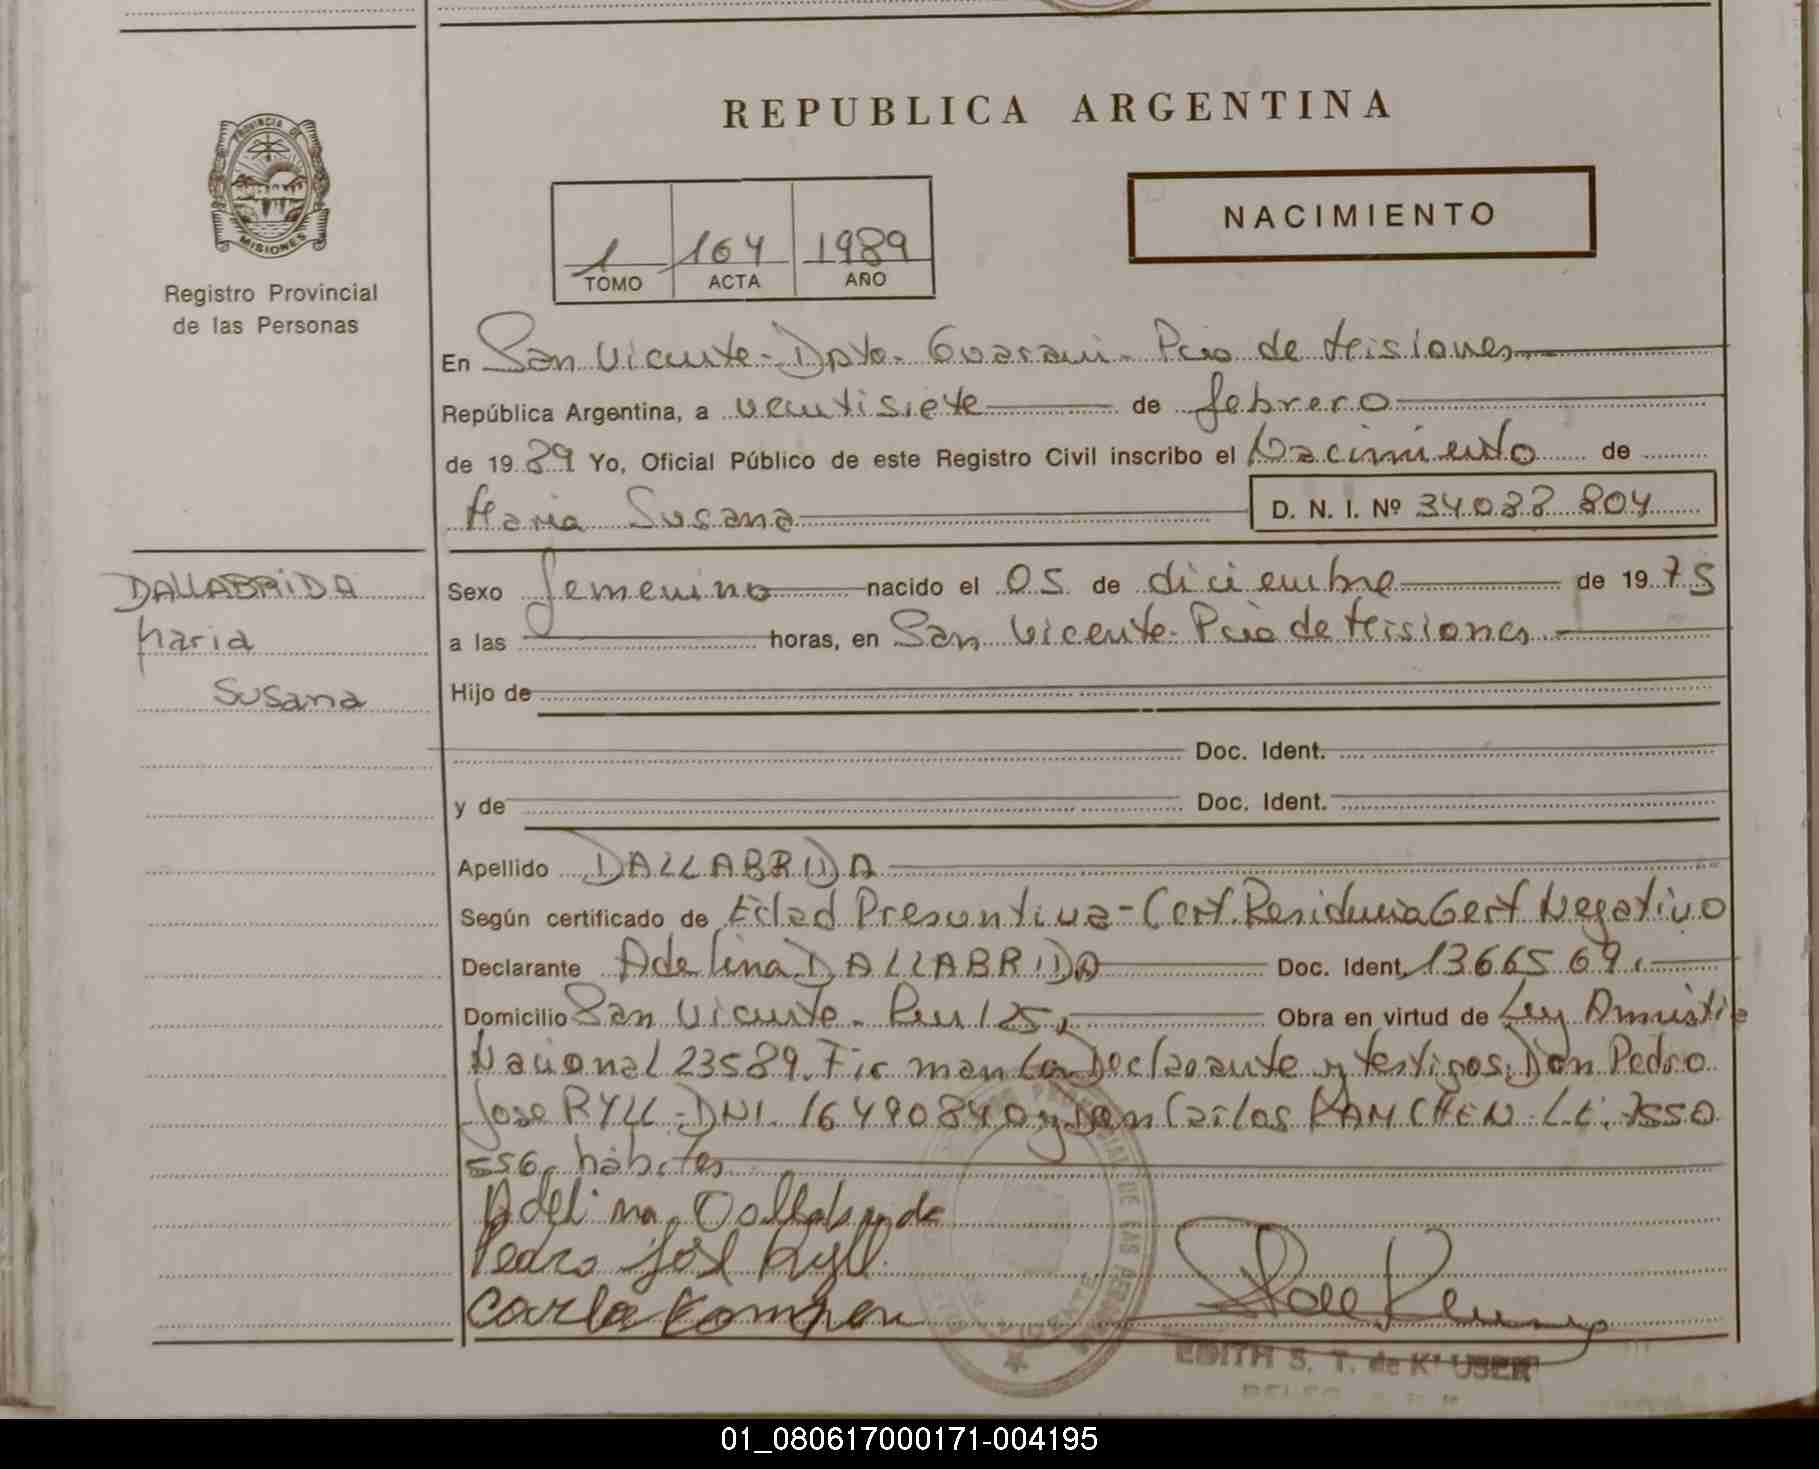 REPUBLICA ARGENTINA
PROVINCIA DE
MISIONES
Registro Provincial
de las Personas
1 164 1989
TOMO ACTA AÑO
NACIMIENTO
En San Vicente - Dpto. Guarani - Pcia de Misiones
República Argentina, a veintisiete de febrero
de 1989 Yo, Oficial Público de este Registro Civil inscribo el Nacimiento de
Maria Susana D. N. I. Nº 34.088.804
DALLABRIDA
Maria
Susana
Sexo femenino nacido el 05 de diciembre de 1975
a las horas, en San Vicente - Pcia de Misiones
Hijo de
Doc. Ident.
y de Doc. Ident.
Apellido DALLABRIDA
Según certificado de Edad Presuntiva - Cert. Residencia Cert Negativo
Declarante Adelina DALLABRIDA Doc. Ident. 13665 69
Domicilio San Vicente - Km 125, Obra en virtud de Ley Amnistia
Nacional 23589. Firman La Declarante y testigos, Don Pedro
Jose RYLL - DNI. 16490840 y Don Carlos KAMCHEN - L.E. 7550
556, habiles
Adelina Dallabrida
Pedro José Ryll
EDITH S. T. de K' USER
01_080617000171-004195